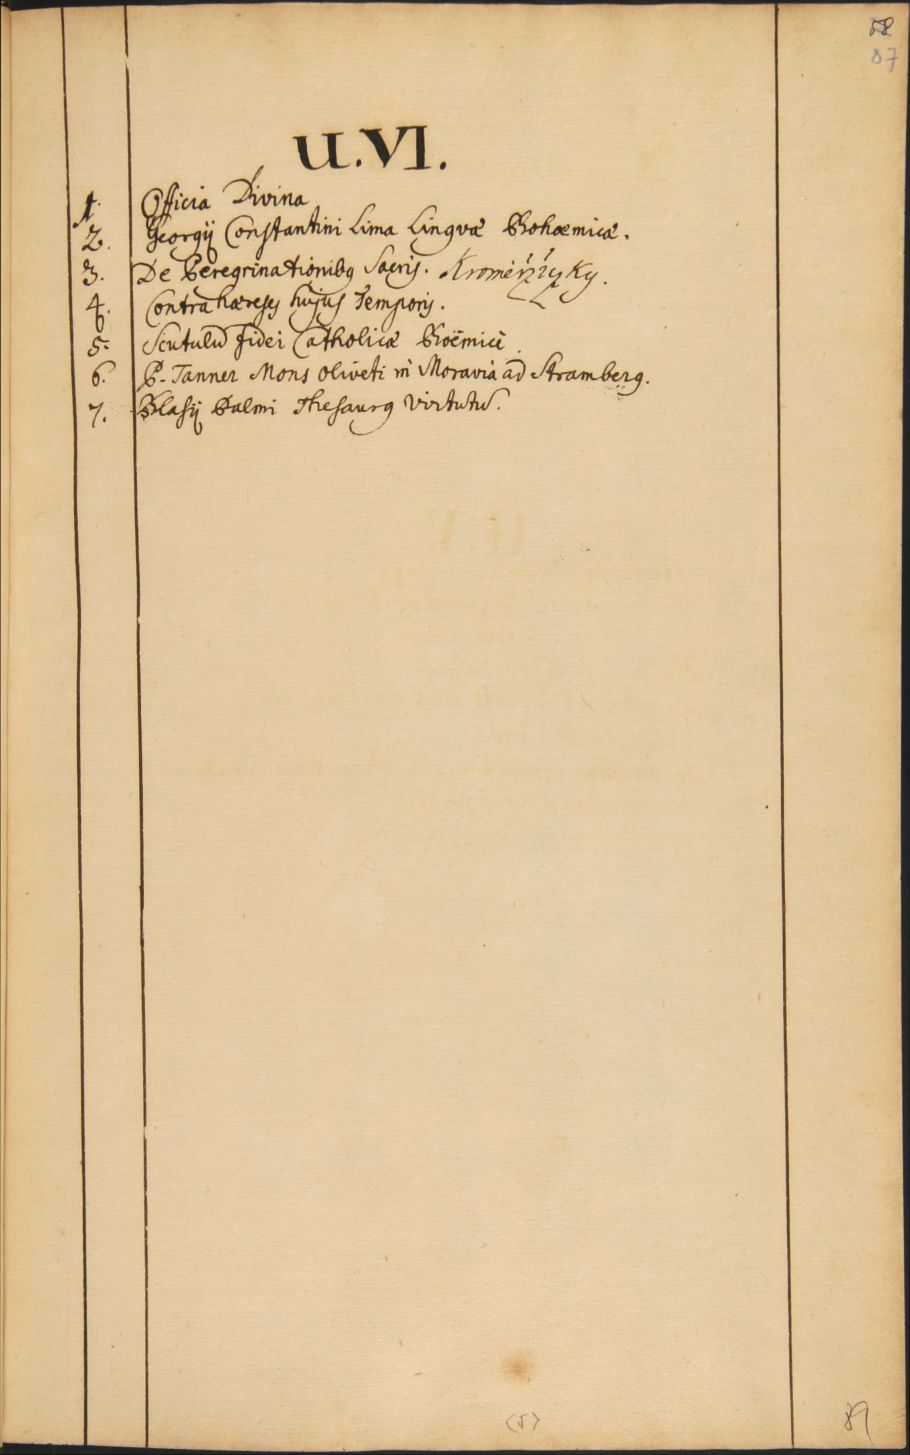 58
87
U.VI.
1. Officia Divina
2. Georgij Constantini Lima Lingvæ Bohœmicæ.
3. De Peregrinationibꝯ Sacris.
4. Contra hæreses hujus Temporis.
5. Scutulū fidei Catholicæ Boëmicè.
6. P. Tanner Mons oliveti in Moravia ad Stramberg.
7. Blasij Palmi Thesaurꝯ virtutū.